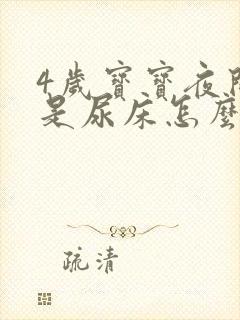 4歲寶寶夜間
是尿床怎麼
疏清